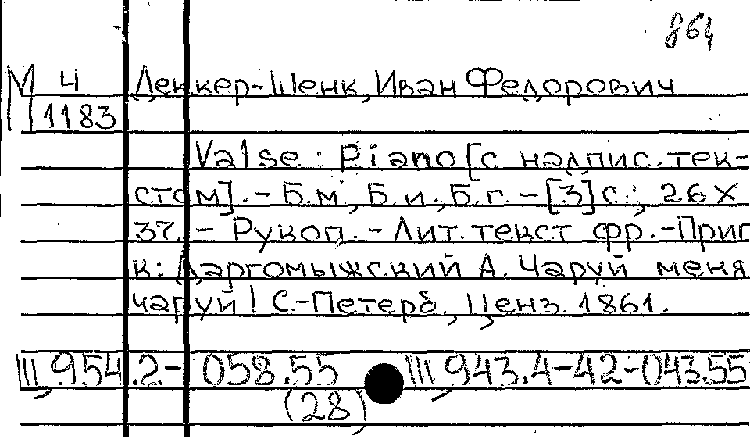 864
М Ч Деккер-Шенк, Иван Федорович
1183
Valse: Piano [с надпис. тек-
стом]. - Б.м., Б.и., Б.г. - [3] с.; 26 х
37. - Рукоп. - Лит. текст фр. - Приг
к: Даргомыжский А. Чаруй меня
чаруй! С.-Петерб., Ценз. 1861.
III, 954.2- 058.55 III, 943.4-42-043.55
(28)